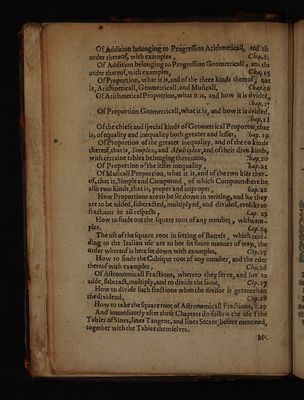 Of Addition belonging to Progression Arithmeticall, and the
order thereof, with examples, Chap.
Of Addition belonging to Progression Geometricall, and the
order thereof, with examples, Cha,15
Of Proportion, what it is, and of the three kinds thereof, that
is, Arithmeticall, Geometricall, and Musicall, Chap.16
Of Arithmeticall Proportion, what it is, and how it is divided,
Chap.17
Of Proportion Geometricall, what it is, and how it is divided,
Chap.18
Of the chiefe and speciall kinds of Geometrical Proportiō, that
is, of equality and inequality both greater and lesser, Chap. 19
Of Proportion of the greater inequality, and of the two kinds
thereof, that is, Simplex, and Multiplex, and of their divers kinds,
with certaine tables belonging thereunto, Chap.20
Of Proportion of the lesser inequality, Chap.21
Of Musicall Proportion, what it is, and of the two kinds ther-
of, that is, Simple and Compound, of which Compound there be
also two kinds, that is, proper and unproper, Cap.22
How Proportions are to be set down in writing, and how they
are to be added, substracted, multiplyed, and divided, even like to
fractions in all respects, Cap. 23
How to finde out the square root of any number, with exam-
ples, Cap.24
The use of the square root in setting of Battels, which accor-
ding to the Italian use are to be set foure manner of way, the
order whereof is here set down with examples, Cap.25
How to finde the Cubique root of any number, and the order
thereof with examples, Cha.26
Of Astronomicall Fractions, whereto they serve, and how to
adde, substract, multiply, and to divide the same, Cap.27
How to divide such fractions when the divisor is greater than
the dividend, Cap.28
How to take the square root of Astronomicall Fractions, Cap.29
And immediately after these Chapters do follow the use of the
Tables of Sines, lines Tangent, and lines Secant, before mentioned,
together with the Tables themselves.